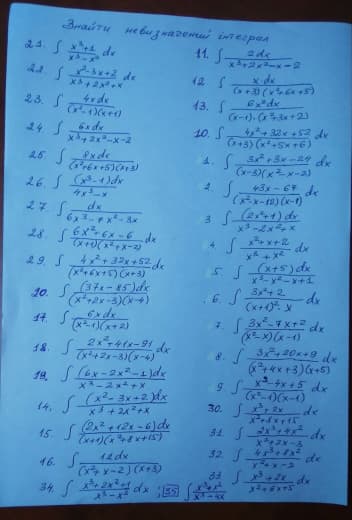 Знайти невизначений інтеграл
21. ∫ (x³+1)/(x³-x²) dx
22. ∫ (x²-3x+2)/(x³+2x²+x) dx
23. ∫ 4xdx/((x²-1)(x+1))
24. ∫ 6xdx/(x³+2x²-x-2)
25. ∫ 8xdx/((x²+6x+5)(x+3))
26. ∫ (x³-1)dx/(4x³-x)
27. ∫ dx/(6x³-7x²-3x)
28. ∫ (6x²+6x-6)/((x+1)(x²+x-2)) dx
29. ∫ (4x²+32x+52)/((x²+6x+5)(x+3)) dx
20. ∫ (37x-85)dx/((x²+2x-3)(x-4))
17. ∫ 6xdx/((x²-1)(x+2))
18. ∫ (2x²+41x-91)/((x²+2x-3)(x-4)) dx
19. ∫ (6x-2x²-1)dx/(x³-2x²+x)
14. ∫ (x²-3x+2)dx/(x³+2x²+x)
15. ∫ (2x²+12x-6)dx/((x+1)(x²+8x+15))
16. ∫ 12dx/((x²+x-2)(x+3))
34. ∫ (x³+2x²+1)/(x³-x²) dx ; 35 ∫ (x³+x²)/(x³-4x)
11. ∫ 2dx/(x³+2x²-x-2)
12 ∫ x·dx/((x+3)(x²+6x+5))
13. ∫ 6x²dx/((x-1)·(x²+3x+2))
10. ∫ (4x²+32x+52)/((x+3)(x²+5x+6)) dx
1. ∫ (3x²+3x-24)/((x-3)(x²-x-2)) dx
2. ∫ (43x-67)/((x²-x-12)(x-1)) dx
3 ∫ (2x²+1)dx/(x³-2x²+x)
4. ∫ (x²+x+2)/(x³+x²) dx
5. ∫ (x+5)dx/(x³-x²-x+1)
6. ∫ (3x²+2)/((x+1)²·x) dx
7. ∫ (3x²-7x+2)/((x²-x)(x-1)) dx
8. ∫ (3x²+20x+9)/((x²+4x+3)(x+5)) dx
9 ∫ (x³-4x+5)/((x²-1)(x-1)) dx
30. ∫ (x³+2x)/(x²+8x+15) dx
31 ∫ (2x³+4x²)/(x²+2x-3) dx
32 ∫ (4x³+8x²)/(x²+x-2) dx
33 ∫ (x³+2x)/(x²+6x+5) dx